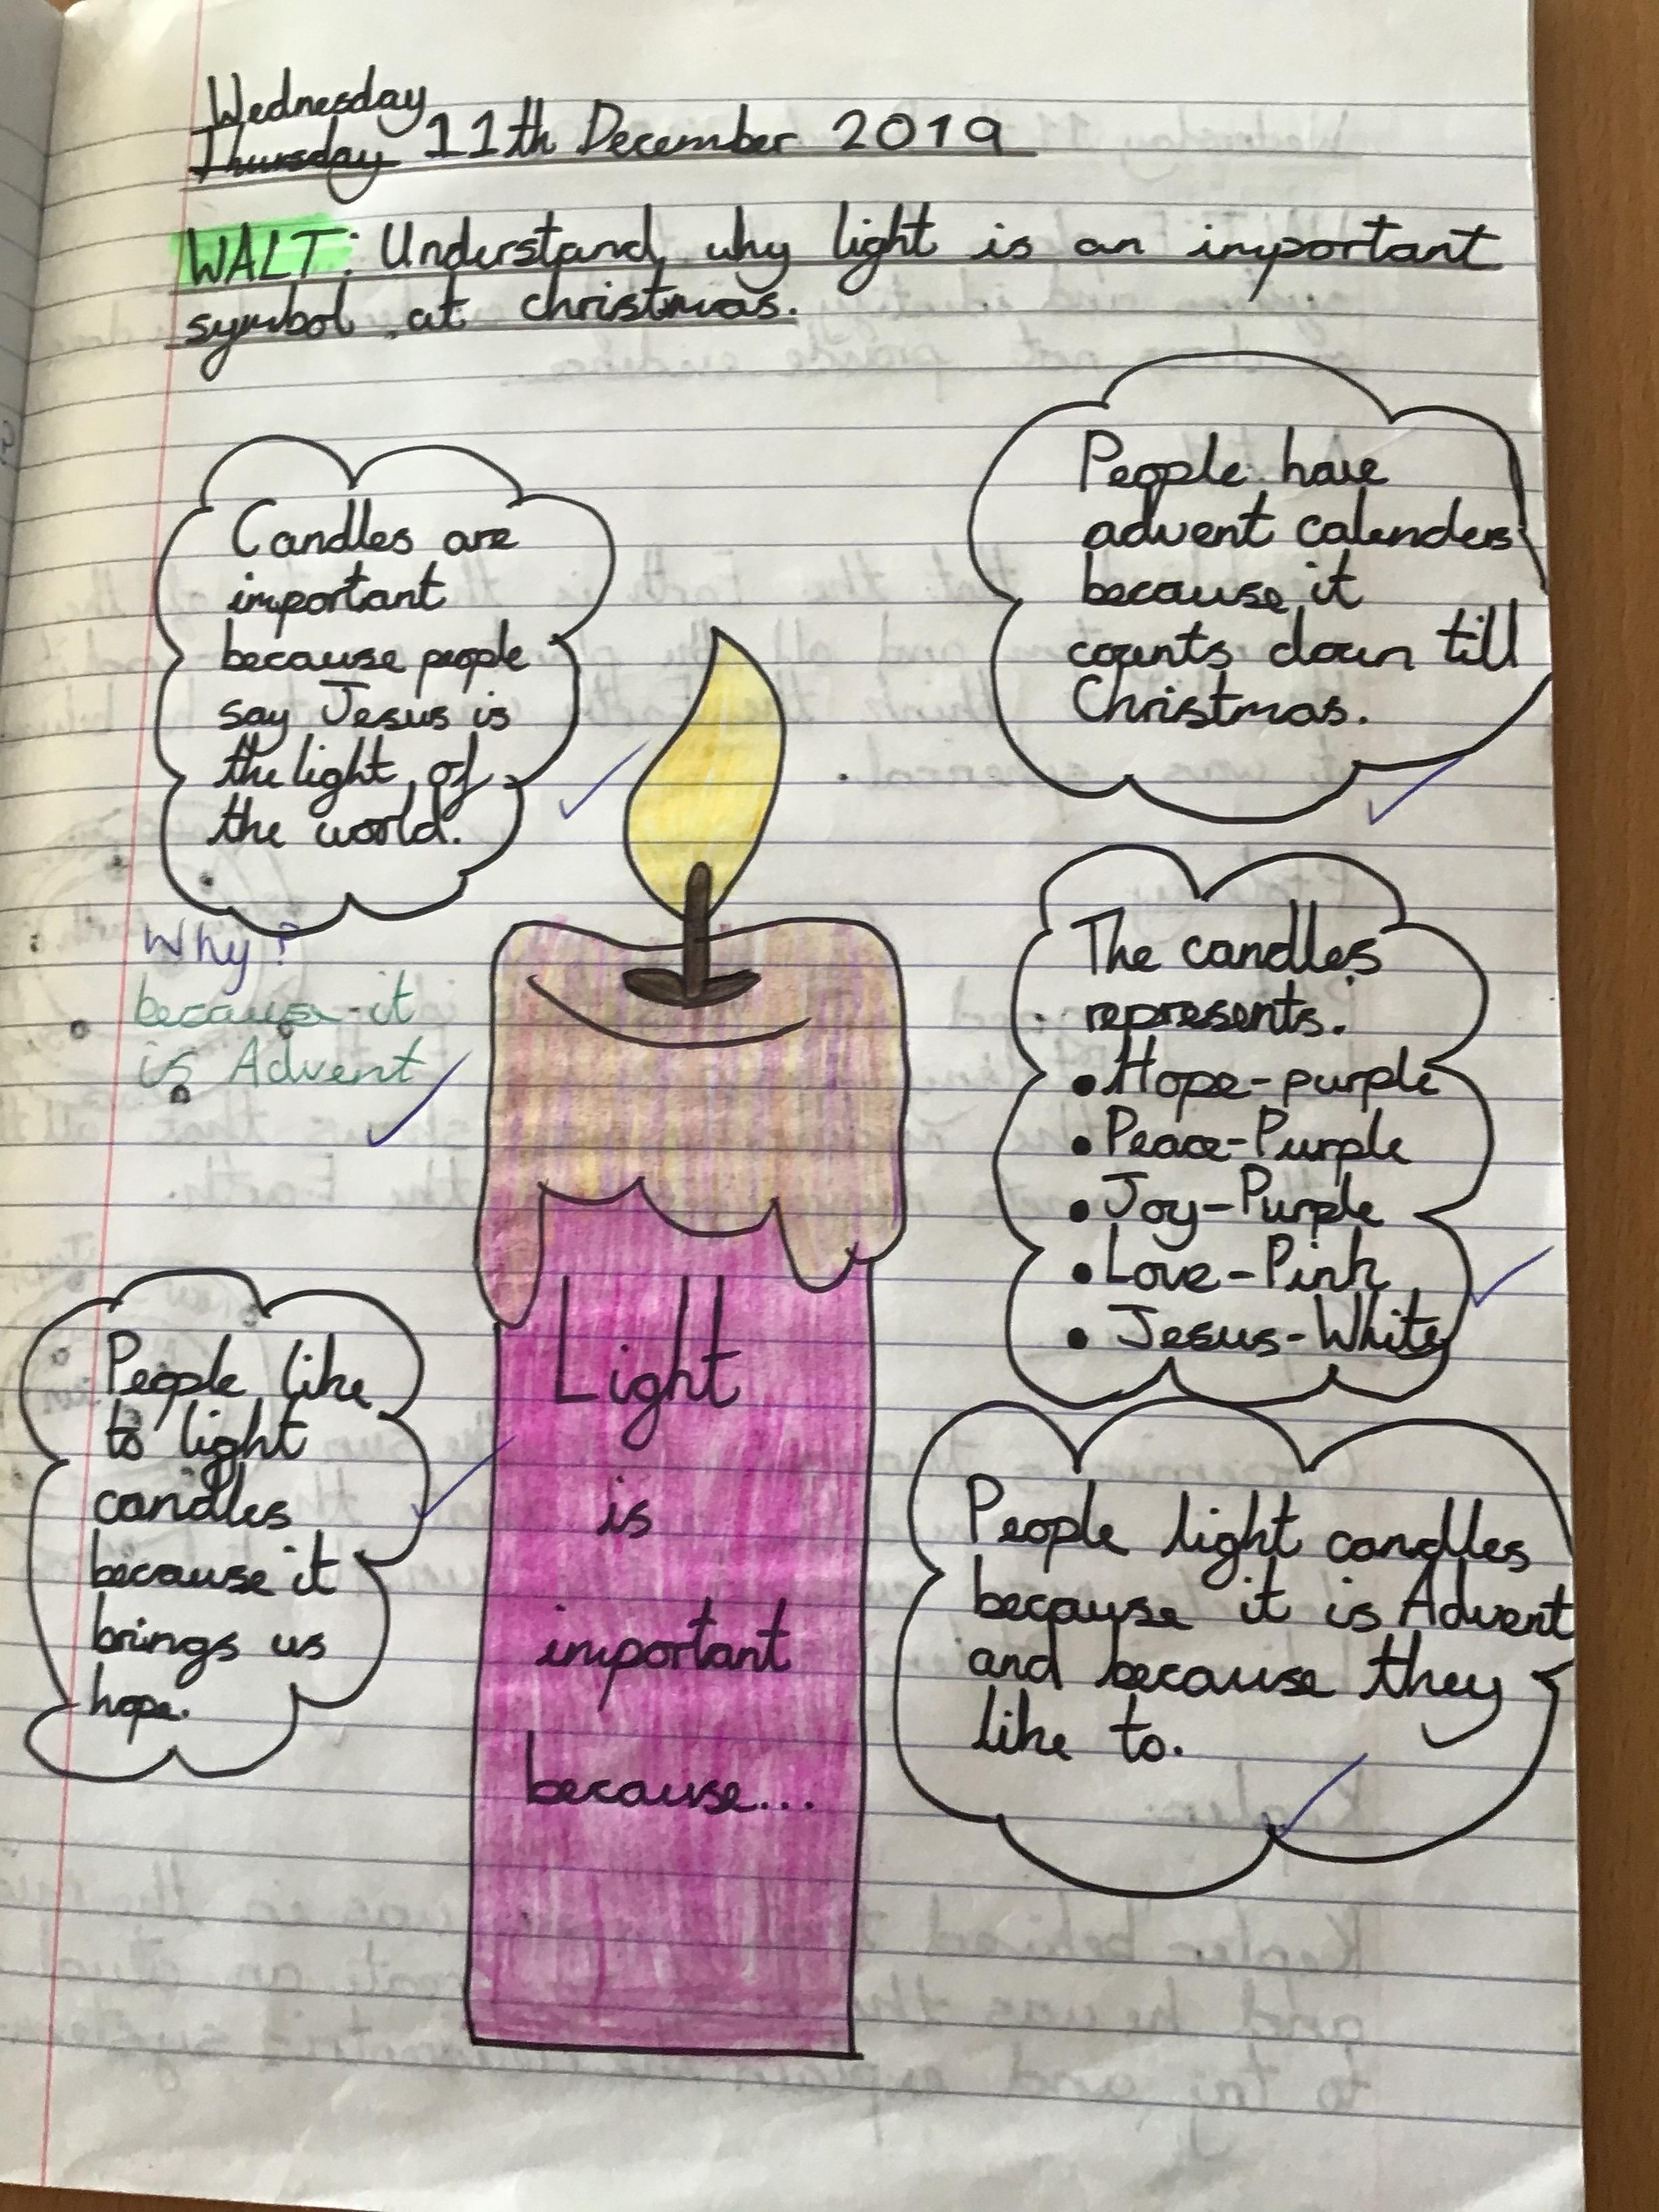 Wednesday
Thursday 11th December 2019
WALT: Understand why light is an important
symbol at christmas.
Candles are
important
because people
say Jesus is
the light of
the world.
Why?
because it
is Advent
People like
to light
candles
because it
brings us
hope.
Light
is
important
because...
People have
advent calenders
because it
counts down till
Christmas.
The candles
represents.
• Hope-purple
• Peace-Purple
• Joy-Purple
• Love-Pink
• Jesus-White
People light candles
because it is Advent
and because they
like to.